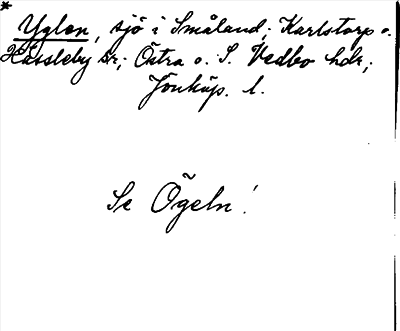 * Yglen, sjö i Småland; Karlstorp o.
Hässleby snr; Östra o. S. Vedbo hdr;
Jönköp. l.
Se Ögeln!